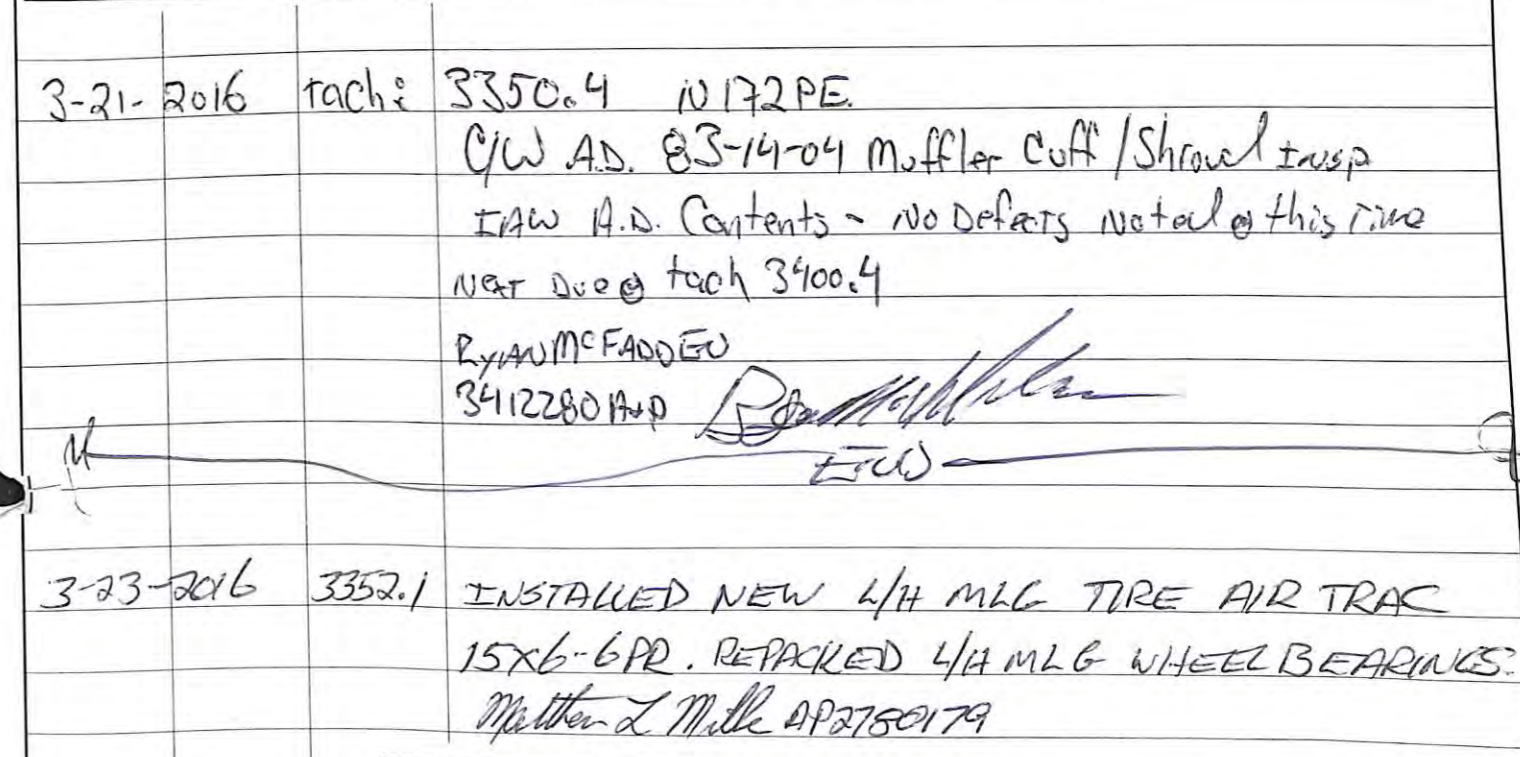 3-21-2016 tach: 3350.4 N172PE.
C/W A.D. 83-14-04 Muffler Cuff/Shroud Insp
IAW A.D. Contents - No Defects Noted @ this Time
Next Due @ tach 3400.4
RYAN McFADDEN
3412280 A+P
3-23-2016 3352.1 INSTALLED NEW L/H MLG TIRE AIR TRAC
15X6-6PR. REPACKED L/H MLG WHEEL BEARINGS.
Matthew L Mille AP2780179